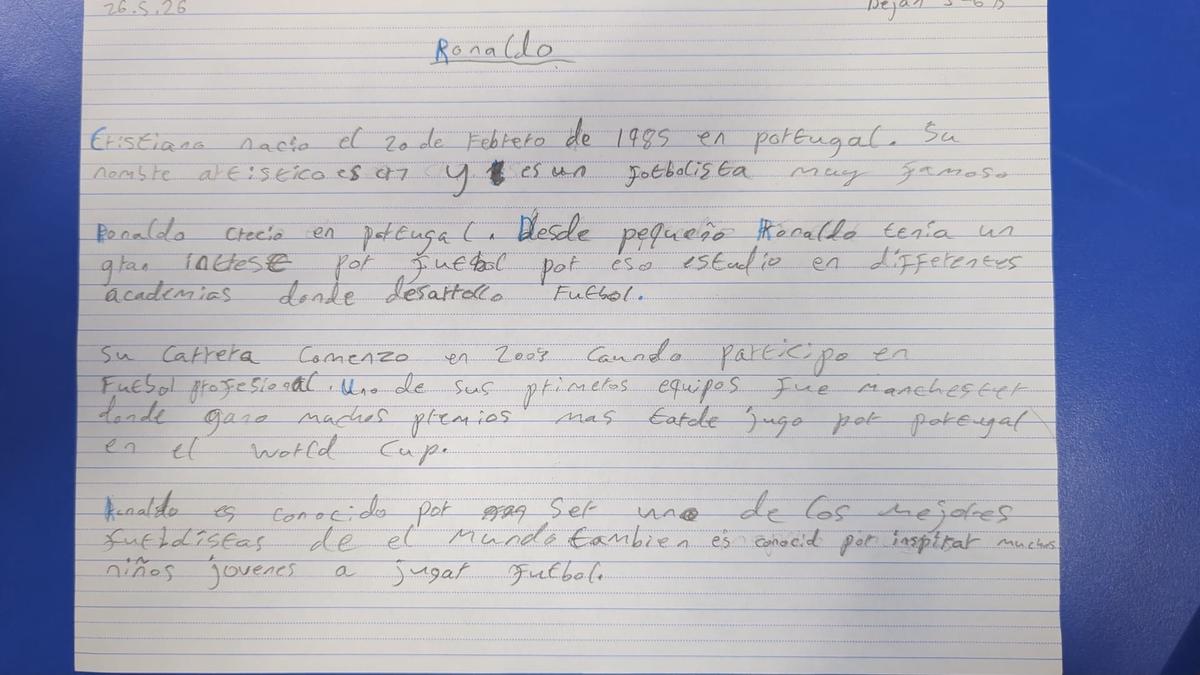 26.5.26
Dejan
Ronaldo
Cristiano nacio el 20 de Febrero de 1985 en portugal. Su
nombre artistico es cr7 y es un fotbolista muy famoso
Ronaldo crecio en portugal. Desde pequeño Ronaldo tenia un
gran interese por futbol por eso estudio en differentes
academias donde desarrollo Futbol.
Su carrera comenzo en 2003 caundo participo en
Futbol profesional. Uno de sus primeros equipos fue manchester
donde gano muchos premios mas tarde jugo por portugal
en el world cup.
Ronaldo es conocido por ser uno de los mejores
futbolistas de el mundo tambien es conocid por inspirar muchos
niños jovenes a jugar futbol.